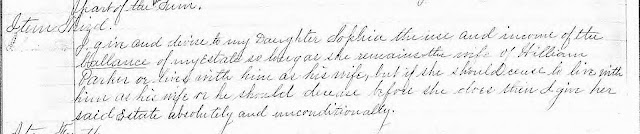 part of the Sum.
Item Third.
I give and devise to my Daughter Sophia the use and income of the
ballance of my Estate so long as she remains the wife of William
Parker or lives with him as his wife, but if she should cease to live with
him as his wife or he should decease before she does then I give her
said Estate absolutely and unconditionally.